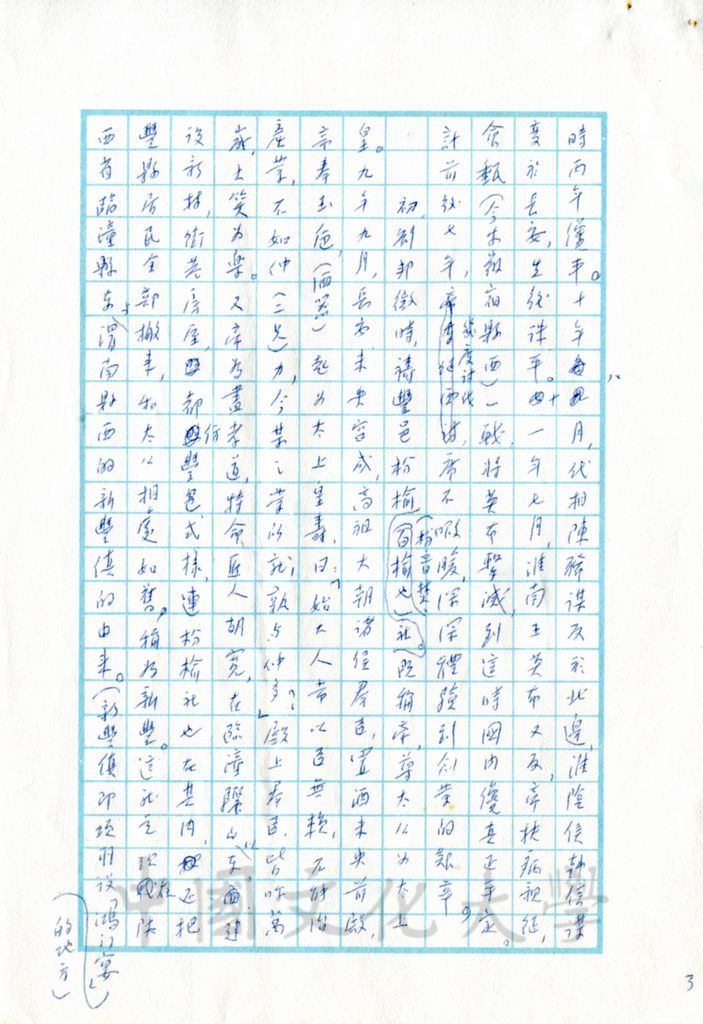 時兩年纔平。十年九月，代相陳豨謀反於北邊，淮陰侯韓信謀
變於長安，生殺誅平。十一年七月，淮南王英布又反，帝扶病親征，
會甀（今安徽宿縣西）一戰，將英布擊滅，到這時國內纔真正平定。
計前後七年，幾度討伐，席不暇暖，深深體驗到創業的艱辛。
初，劉邦微時，禱豐邑枌榆（枌音焚白榆也）社。既稱帝，尊太公為太上
皇。九年九月，長安未央宮成，高祖大朝諸侯羣臣，置酒未央前殿，
帝奉玉巵，（酒器）起為太上皇壽，曰：「始大人常以臣無賴，不能治
產業，不如仲（二兄）力，今某之業所就，孰與仲多？」殿上羣臣，皆呼萬
歲，大笑為樂。又帝為盡孝道，特命匠人胡寬，在臨潼驪山以東，面建
設新村，街巷房屋，都仿豐邑式樣，連枌榆社也在其內，還把
豐縣居民全部搬來，和太公相處如舊，稱為新豐。這就是現在陝
西省臨潼縣東、渭南縣西的新豐鎮的由來。（新豐鎮即項羽設「鴻門宴」
的地方）
3
中國文化大學